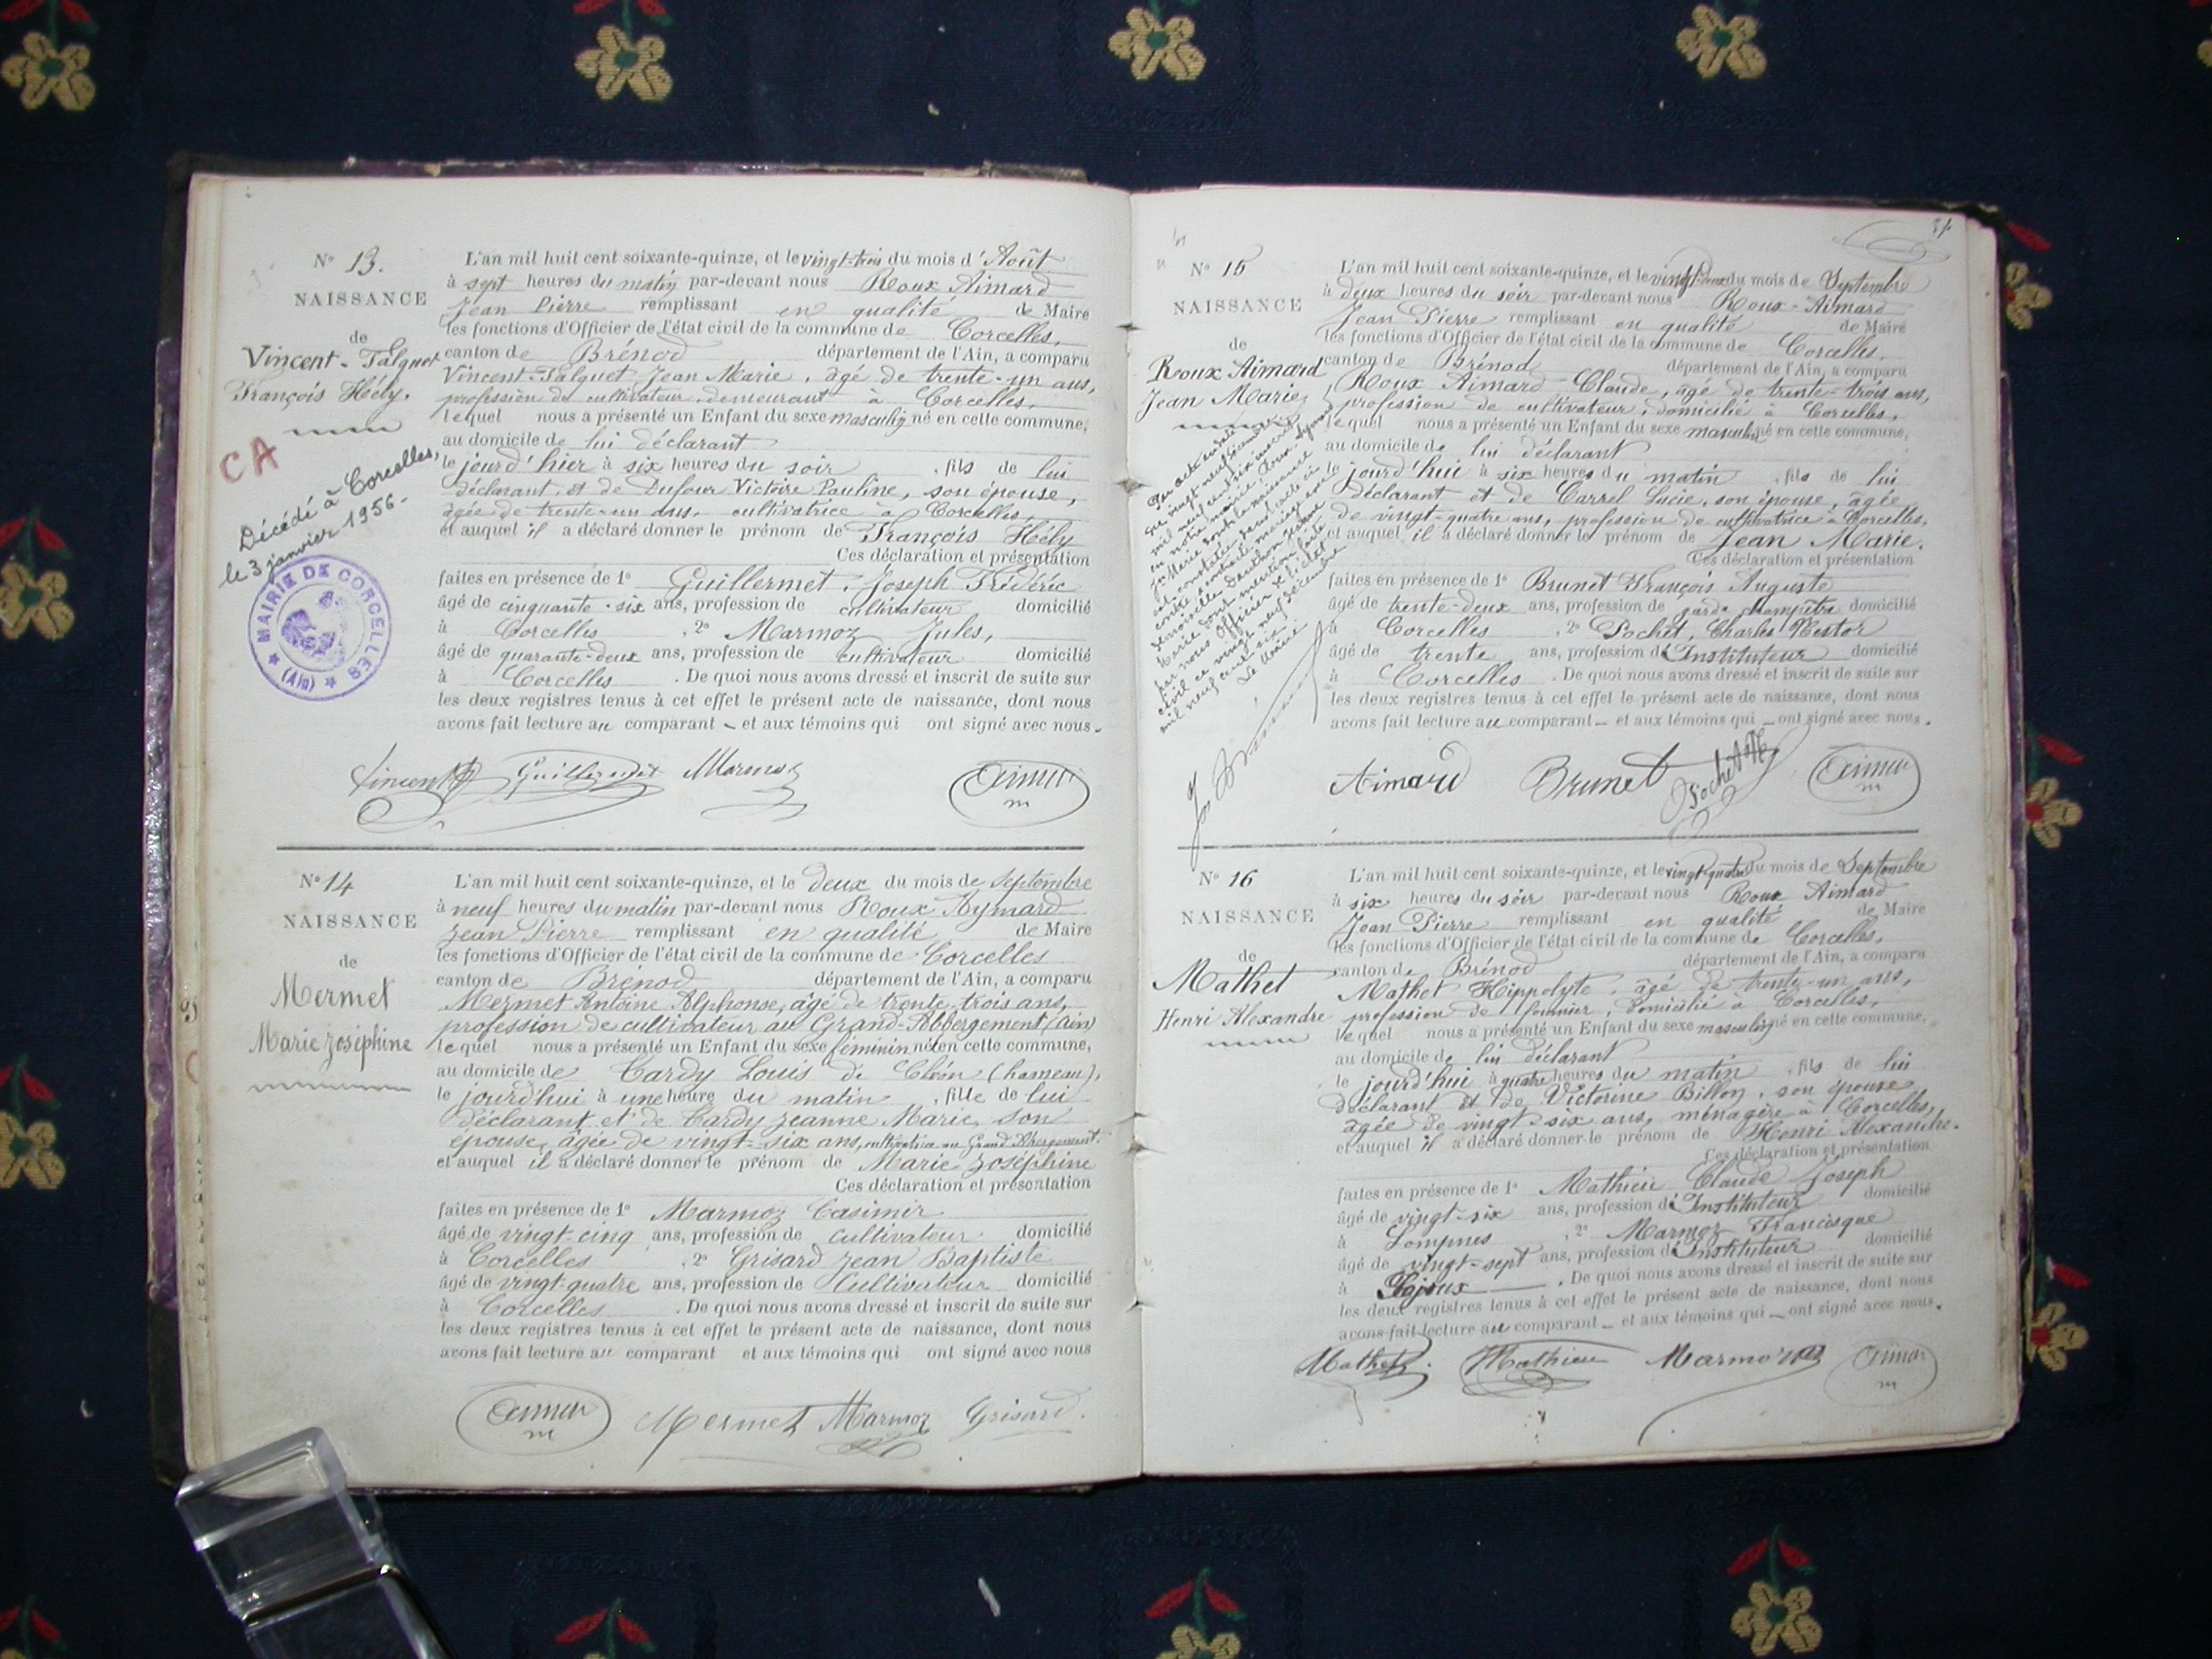 N° 13.
NAISSANCE
de
Vincent-Falquet
François Hély.
CA
Décédé à Corcelles,
le 3 janvier 1956-
MAIRIE DE CORCELLES
(Ain)
L'an mil huit cent soixante-quinze, et le vingt-trois du mois d'Août
à sept heures du matin par-devant nous Roux Aimard
Jean Pierre remplissant en qualité de Maire
les fonctions d'Officier de l'état civil de la commune de Corcelles,
canton de Brénod département de l'Ain, a comparu
Vincent-Falquet Jean Marie, âgé de trente-un ans,
profession de cultivateur, demeurant à Corcelles,
lequel nous a présenté un Enfant du sexe masculin né en cette commune,
au domicile de lui déclarant
le jourd'hier à six heures du soir, fils de lui
déclarant, et de Dufour Victoire Pauline, son épouse,
âgée de trente-un ans, cultivatrice à Corcelles,
et auquel il a déclaré donner le prénom de François Hély
Ces déclaration et présentation
faites en présence de 1° Guillermet, Joseph Frédéric
âgé de cinquante-six ans, profession de cultivateur domicilié
à Corcelles, 2° Marmoz Jules,
âgé de quarante-deux ans, profession de cultivateur domicilié
à Corcelles. De quoi nous avons dressé et inscrit de suite sur
les deux registres tenus à cet effet le présent acte de naissance, dont nous
avons fait lecture au comparant - et aux témoins qui ont signé avec nous.
Vincent Guillermet Marmoz Aimar
N° 14
NAISSANCE
de
Mermet
Marie Joséphine
L'an mil huit cent soixante-quinze, et le deux du mois de Septembre
à neuf heures du matin par-devant nous Roux Aymard
Jean Pierre remplissant en qualité de Maire
les fonctions d'Officier de l'état civil de la commune de Corcelles
canton de Brénod département de l'Ain, a comparu
Mermet Antoine Alphonse, âgé de trente trois ans,
profession de cultivateur au Grand-Abbergement (Ain)
lequel nous a présenté un Enfant du sexe féminin née en cette commune,
au domicile de Cardy Louis de Cléon (hameau),
le jourd'hui à une heure du matin, fille de lui
déclarant et de Cardy Jeanne Marie, son
épouse, âgée de vingt-six ans, cultivatrice au Grand Abergement.
et auquel il a déclaré donner le prénom de Marie Joséphine
Ces déclaration et présentation
faites en présence de 1° Marmoz Casimir
âgé de vingt-cinq ans, profession de cultivateur domicilié
à Corcelles, 2° Grisard Jean Baptiste
âgé de vingt-quatre ans, profession de Cultivateur domicilié
à Corcelles. De quoi nous avons dressé et inscrit de suite sur
les deux registres tenus à cet effet le présent acte de naissance, dont nous
avons fait lecture au comparant et aux témoins qui ont signé avec nous
Aimar Mermet Marmoz Grisard.
N° 15
NAISSANCE
de
Roux Aimard
Jean Marie
L'an mil huit cent soixante-quinze, et le vingt-deux du mois de Septembre
à deux heures du soir par-devant nous Roux-Aimard
Jean Pierre remplissant en qualité de Maire
les fonctions d'Officier de l'état civil de la commune de Corcelles,
canton de Brénod département de l'Ain, a comparu
Roux Aimard-Claude, âgé de trente-trois ans,
profession de cultivateur, domicilié à Corcelles,
lequel nous a présenté un Enfant du sexe masculin né en cette commune,
au domicile de lui déclarant
le jourd'hui à six heures du matin, fils de lui
déclarant et de Carrel Lucie, son épouse, âgée
de vingt-quatre ans, profession de cultivatrice à Corcelles,
et auquel il a déclaré donner le prénom de Jean Marie.
Ces déclaration et présentation
faites en présence de 1° Brunet François Auguste
âgé de trente-deux ans, profession de garde champêtre domicilié
à Corcelles, 2° Pochet, Charles Nestor
âgé de trente ans, profession d'Instituteur domicilié
à Corcelles. De quoi nous avons dressé et inscrit de suite sur
les deux registres tenus à cet effet le présent acte de naissance, dont nous
avons fait lecture au comparant - et aux témoins qui - ont signé avec nous.
Aimard Brunet Pochet Aimar
N° 16
NAISSANCE
de
Mathet
Henri Alexandre
L'an mil huit cent soixante-quinze, et le vingt-quatre du mois de Septembre
à six heures du soir par-devant nous Roux Aimard
Jean Pierre remplissant en qualité de Maire
les fonctions d'Officier de l'état civil de la commune de Corcelles,
canton de Brénod département de l'Ain, a comparu
Mathet Hippolyte, âgé de trente-un ans,
profession de, domicilié à Corcelles,
lequel nous a présenté un Enfant du sexe masculin né en cette commune,
au domicile de lui déclarant
le jourd'hui à quatre heures du matin, fils de lui
déclarant et de Victorine Billon, son épouse
âgée de vingt-six ans, ménagère à Corcelles,
et auquel il a déclaré donner le prénom de Henri Alexandre.
Ces déclaration et présentation
faites en présence de 1° Mathieu Claude Joseph
âgé de vingt-six ans, profession d'Instituteur domicilié
à Lompnes, 2° Marmoz Francisque
âgé de vingt-sept ans, profession d'Instituteur domicilié
à Lajoux. De quoi nous avons dressé et inscrit de suite sur
les deux registres tenus à cet effet le présent acte de naissance, dont nous
avons fait lecture au comparant - et aux témoins qui - ont signé avec nous.
Mathet Mathieu Marmoz Aimar